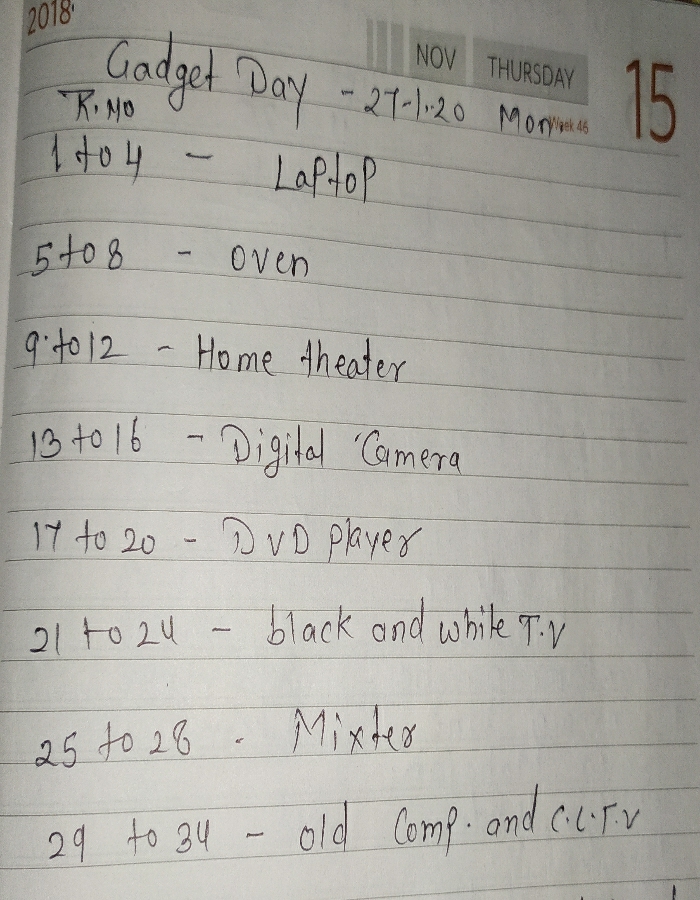 2018
NOV THURSDAY 15
Week 46
Gadget Day - 27-1-20 Mon
R.No
1 to 4 - Laptop
5 to 8 - oven
9 to 12 - Home theater
13 to 16 - Digital Camera
17 to 20 - DVD player
21 to 24 - black and white T.V
25 to 28 - Mixter
29 to 34 - old Comp. and C.C.T.V